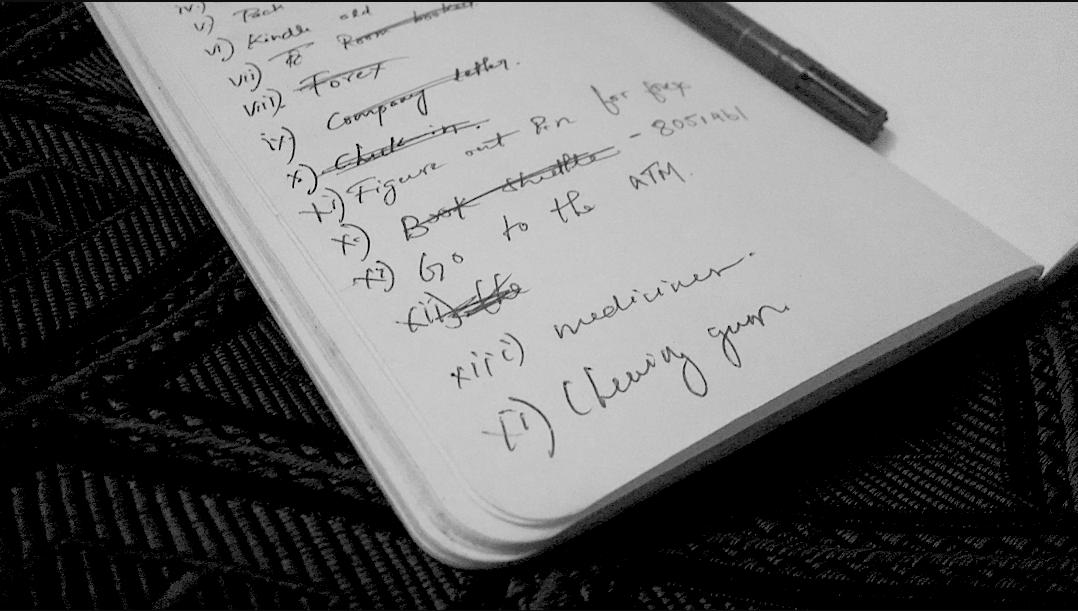 iv)
v) Pack
vi) Kindle old
vii) Room booking
viii) Forex
ix) Company letter.
x) Check in.
xi) Figure out Pin for forex
x) Book Shuttle - 8051461
xi) Go to the ATM.
xii)
xiii) medicines.
xi) Chewing gum.